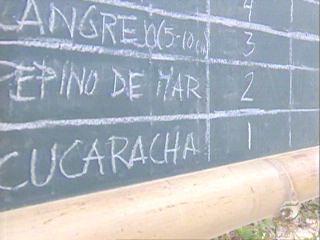 CANGREXO (5-10cm) 3
PEPINO DE MAR 2
CUCARACHA 1